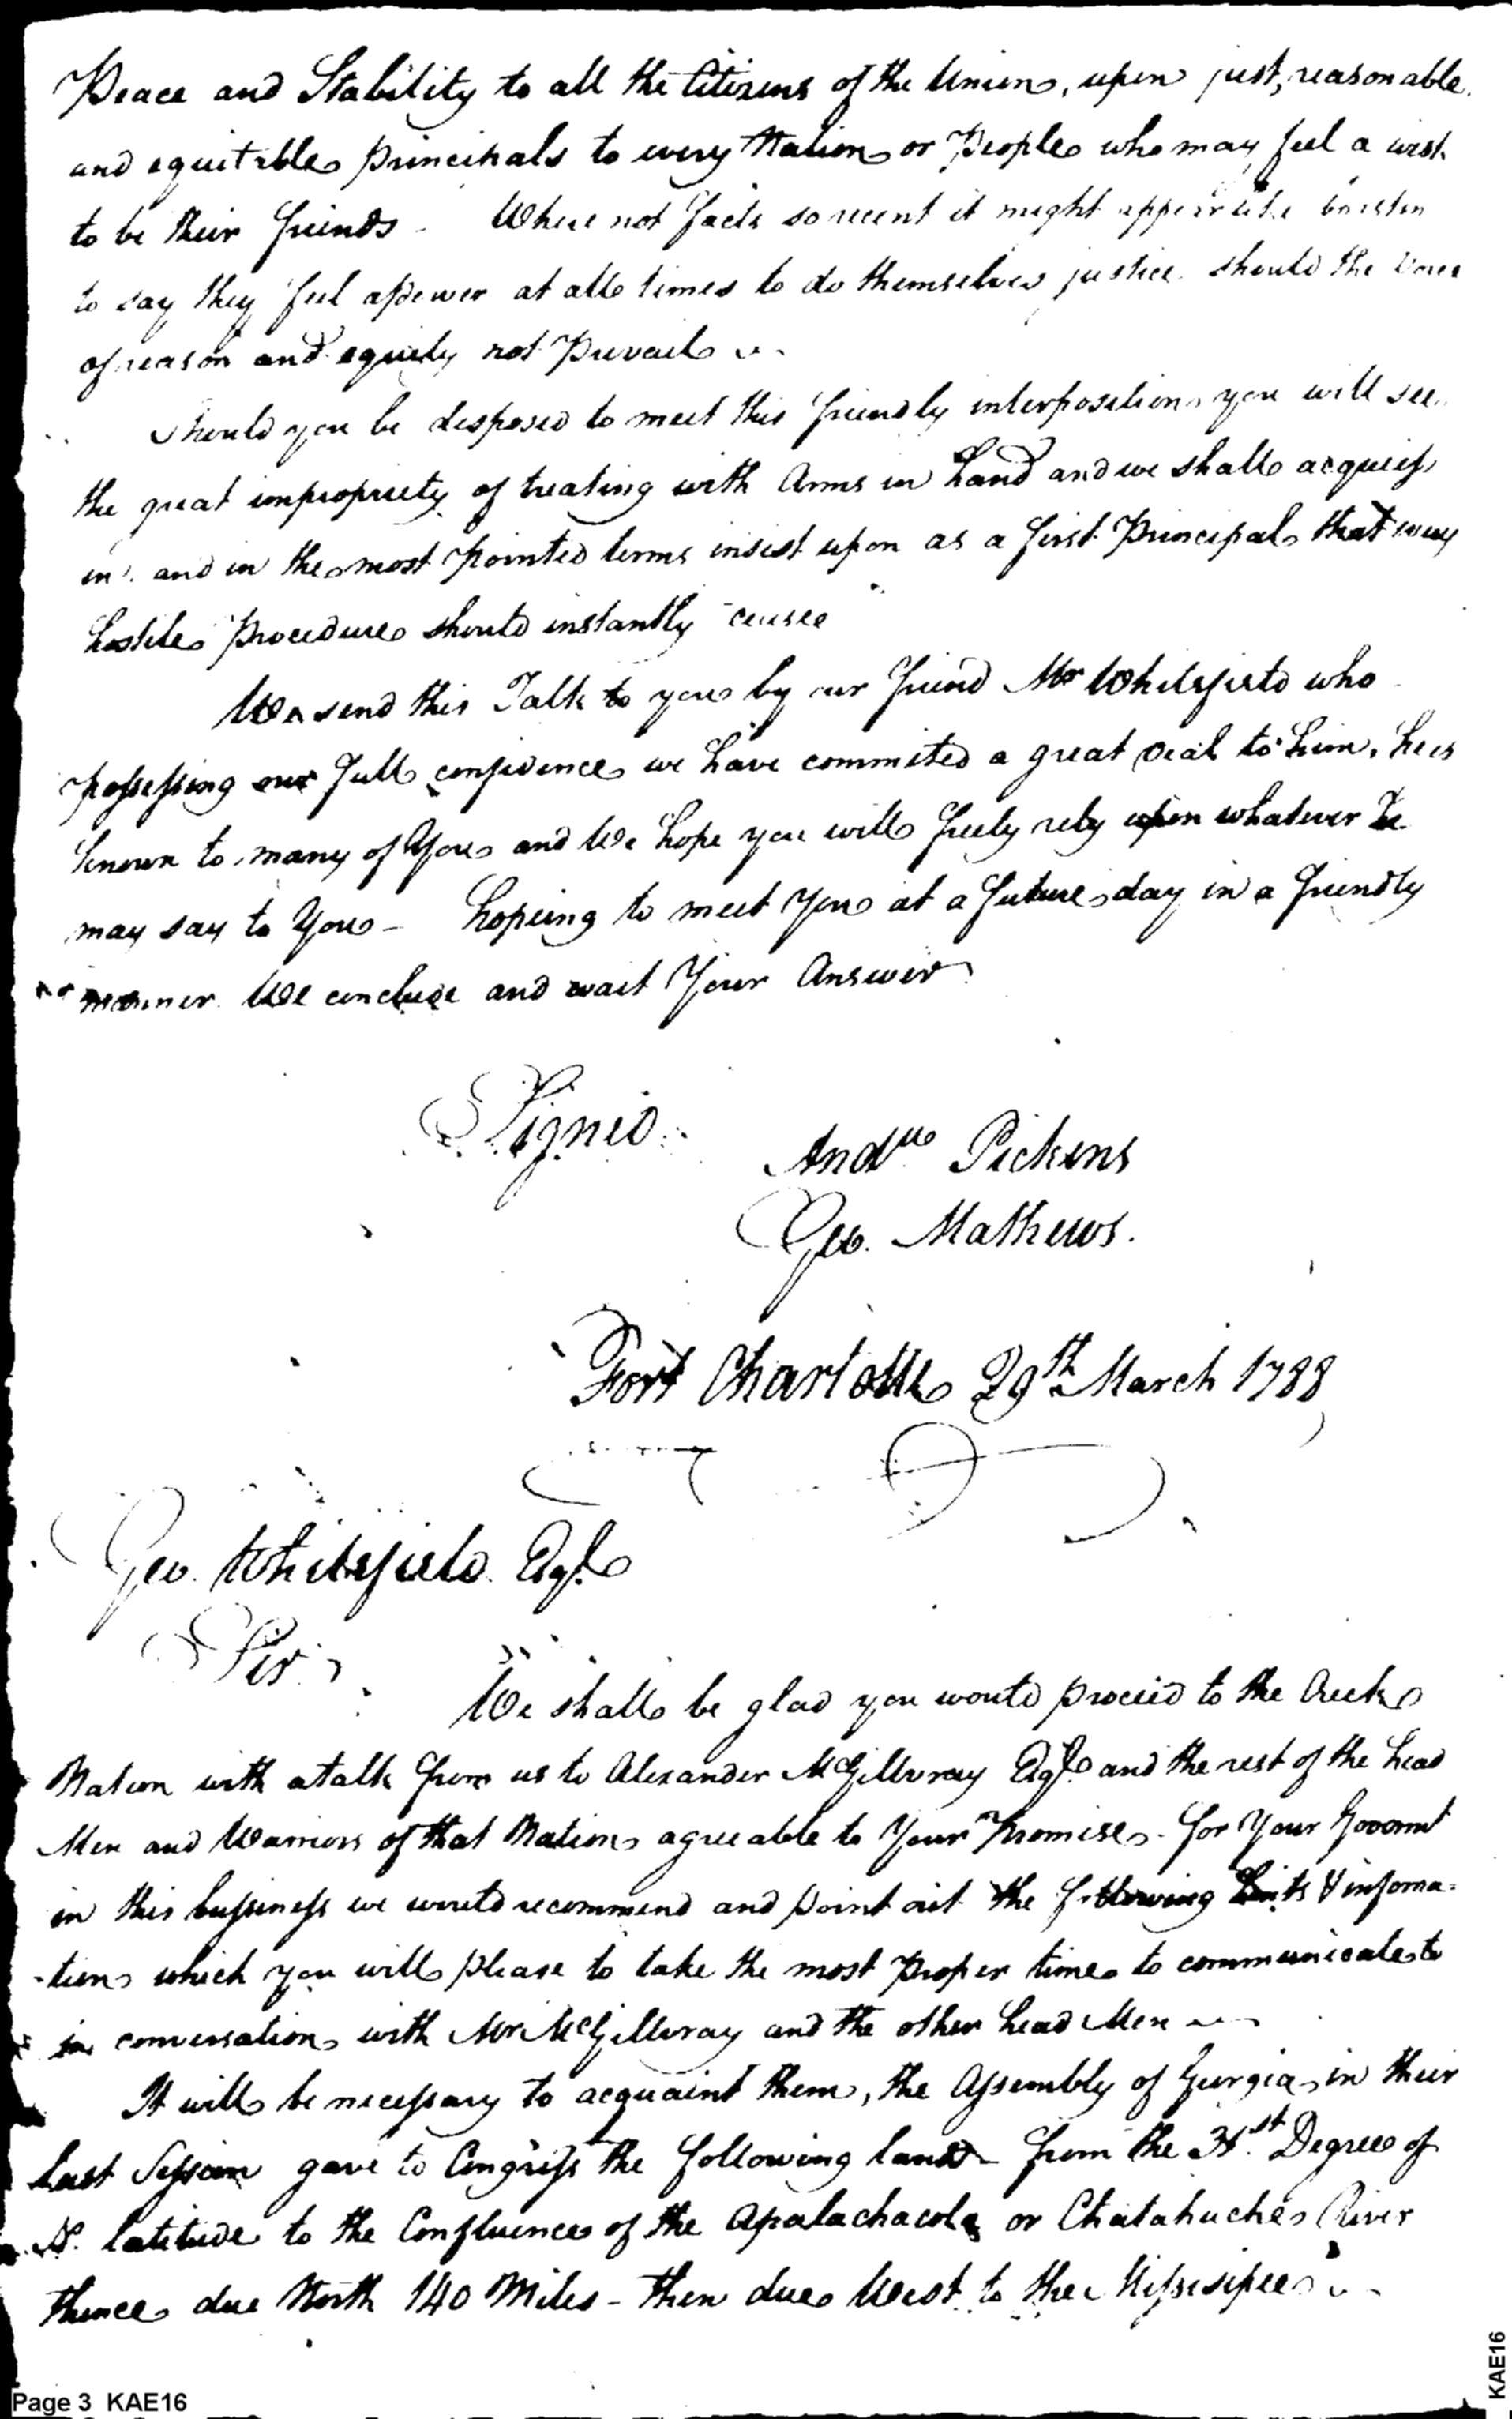 Peace and Stability to all the Citizens of the Union, upon just, reasonable
and equitable principals to every Nation or People who may feel a wish
to be their friends - Where not facts so recent it might appear like
to say they feel a power at all times to do themselves justice should the voice
of reason and equity not Prevail
Should you be disposed to meet this friendly interposition you will see
the great impropriety of treating with Arms in Hand and we shall acquiess
in and in the most pointed terms insist upon as a first Principal that every
hostile Procedure should instantly cease
We send this Talk to you by our friend Mr Whitefield who
possessing our full confidence we have commited a great Deal to him, he is
known to many of You and We hope you will freely rely upon whatever he
may say to You - hopeing to meet You at a future day in a friendly
manner We conclude and wait Your Answer
Signed
Andw Pickens
Geo. Mathews.
Fort Charlotte 29th March 1788
Geo. Whitefield Esqr
Sir
We shall be glad you would proceed to the Creek
Nation with a talk from us to Alexander McGillivray Esqr and the rest of the head
Men and Warriors of that Nation agreeable to Your Promise - for Your Govermt
in this bussiness we would recommend and point out the following Hints & informa-
-tion which you will please to take the most proper time to communicate to
in conversation with Mr McGillivray and the other head Men
It will be necessary to acquaint them, the Assembly of Georgia in their
last Session gave to Congress the following land - from the 31st Degree of
N. latitude to the Confluence of the Apalachacola or Chatahuche River
thence due North 140 Miles - then due West to the Missisipee
Page 3 KAE16
KAE16